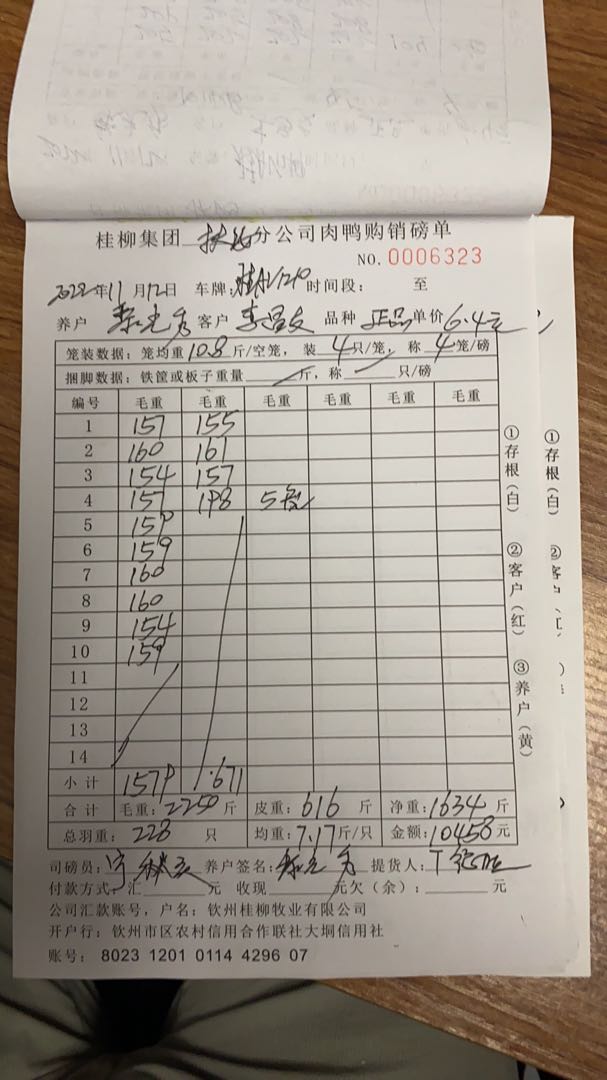 桂柳集团 扶绥 分公司肉鸭购销磅单
NO. 0006323
2022年11月12日 车牌: 时间段: 至
养户 客户 李昌文 品种 正品 单价 6.4元
笼装数据: 笼均重 10.8 斤/空笼, 装 4 只/笼, 称 4 笼/磅
捆脚数据: 铁筐或板子重量 斤, 称 只/磅
编号 毛重 毛重 毛重 毛重 毛重 毛重
1 157 155
2 160 161
3 154 157
4 157 198 5
5 159
6 159
7 160
8 160
9 154
10 159
11
12
13
14
小计 1579 671
合计 毛重: 2250 斤 皮重: 616 斤 净重: 1634 斤
总羽重: 228 只 均重: 7.17 斤/只 金额: 10458 元
司磅员: 养户签名: 提货人:
付款方式: 汇 元 收现 元欠(余): 元
公司汇款账号, 户名: 钦州桂柳牧业有限公司
开户行: 钦州市区农村信用合作联社大垌信用社
账号: 8023 1201 0114 4296 07
①存根(白)
②客户(红)
③养户(黄)
①存根(白)
②客